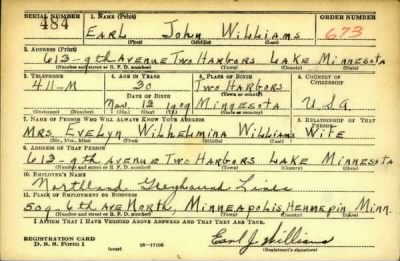 SERIAL NUMBER 1. NAME (Print) ORDER NUMBER
484 EARL JOHN WILLIAMS 673
(First) (Middle) (Last)
2. ADDRESS (Print)
613-9th AVENUE TWO HARBORS LAKE MINNESOTA
(Number and street or R. F. D. number) (Town) (County) (State)
3. TELEPHONE 4. AGE IN YEARS 5. PLACE OF BIRTH 6. COUNTRY OF CITIZENSHIP
411-M 30 TWO HARBORS
DATE OF BIRTH (Town or county)
Nov. 12 1909 MINNESOTA U.S.A
(Mo.) (Day) (Yr.) (State or country)
7. NAME OF PERSON WHO WILL ALWAYS KNOW YOUR ADDRESS 8. RELATIONSHIP OF THAT PERSON
MRS. EVELYN WILHELMINA WILLIAMS WIFE
(Mr., Mrs., Miss) (First) (Middle) (Last)
9. ADDRESS OF THAT PERSON
613-9th AVE TWO HARBORS LAKE MINNESOTA
(Number and street or R. F. D. number) (Town) (County) (State)
10. EMPLOYER'S NAME
Northland Greyhound Lines
11. PLACE OF EMPLOYMENT OR BUSINESS
509-6th AVE NORTH, MINNEAPOLIS, HENNEPIN, MINN.
(Number and street or R. F. D. number) (Town) (County) (State)
I AFFIRM THAT I HAVE VERIFIED ABOVE ANSWERS AND THAT THEY ARE TRUE.
REGISTRATION CARD
D. S. S. Form 1 Earl J. Williams
(Registrant's signature)